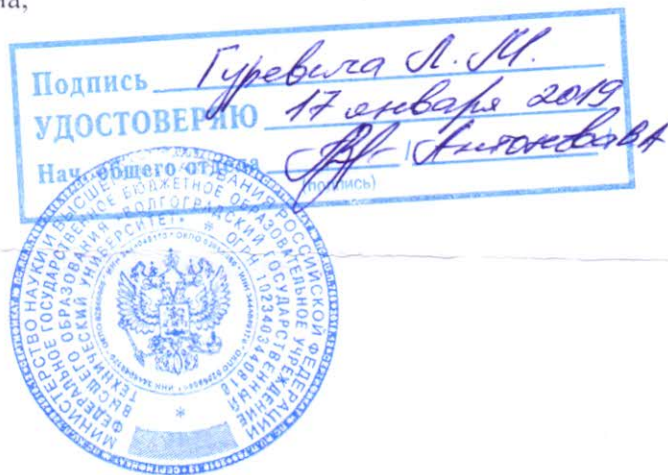 Подпись Гуревича Л. М.
УДОСТОВЕРЯЮ 17 января 2019
Нач. общего отдела Антонова
(подпись)
МИНИСТЕРСТВО НАУКИ И ВЫСШЕГО ОБРАЗОВАНИЯ РОССИЙСКОЙ ФЕДЕРАЦИИ
ФЕДЕРАЛЬНОЕ ГОСУДАРСТВЕННОЕ БЮДЖЕТНОЕ ОБРАЗОВАТЕЛЬНОЕ УЧРЕЖДЕНИЕ
ВЫСШЕГО ОБРАЗОВАНИЯ «ВОЛГОГРАДСКИЙ ГОСУДАРСТВЕННЫЙ
ТЕХНИЧЕСКИЙ УНИВЕРСИТЕТ» * ОГРН